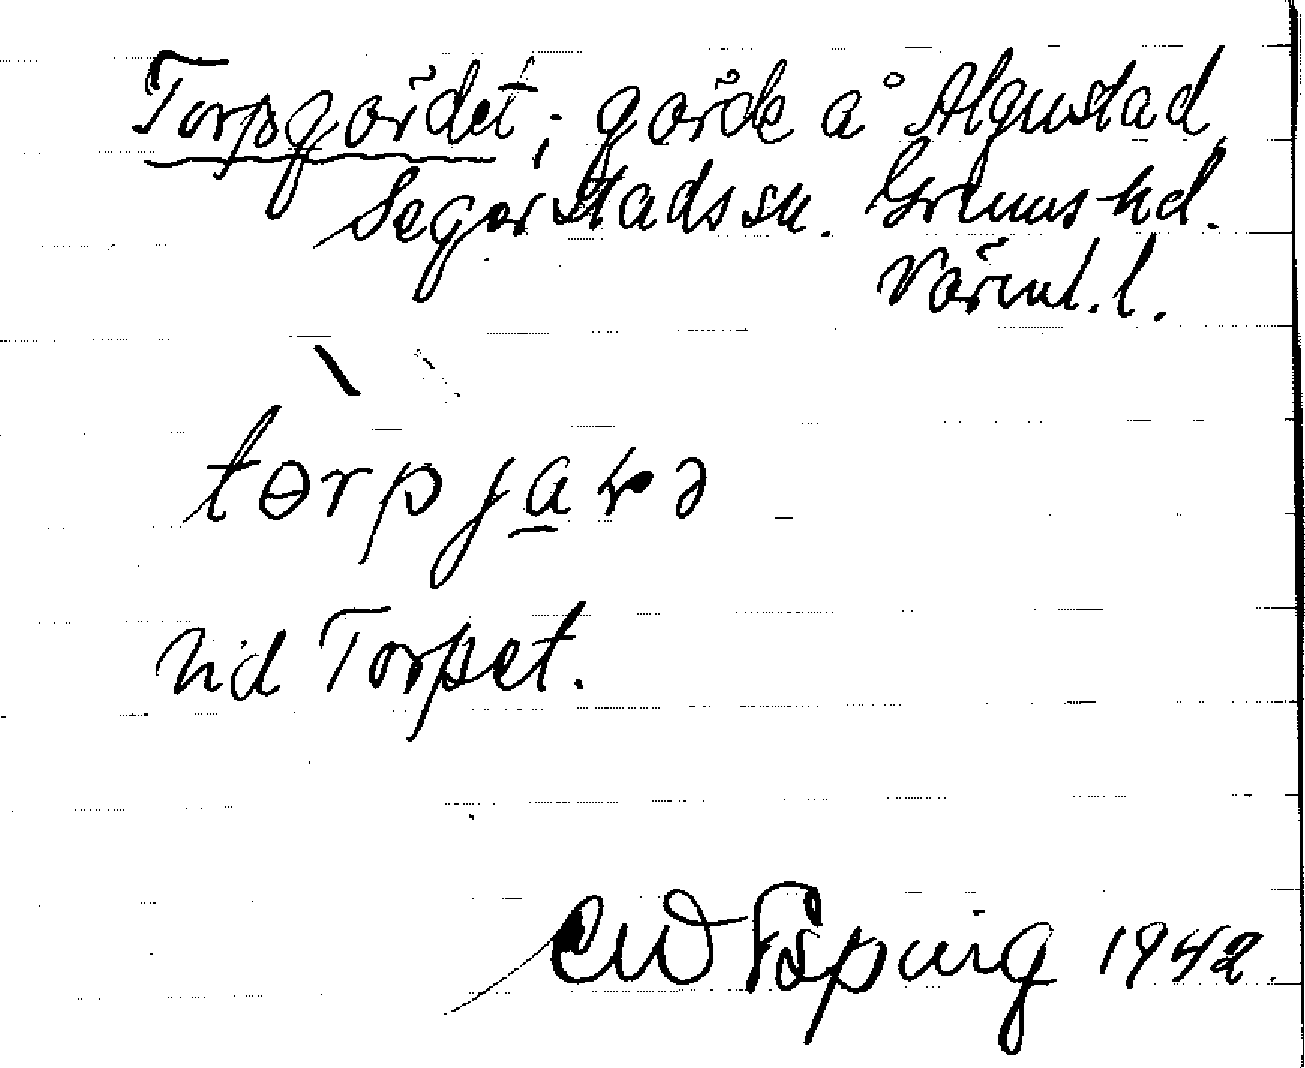 Torpgärdet; gärde å Algustad
Segerstads sn. Grums hd.
Värml. l.
tɵrpja̲ɽə
Vid Torpet.
CW Esping 1942